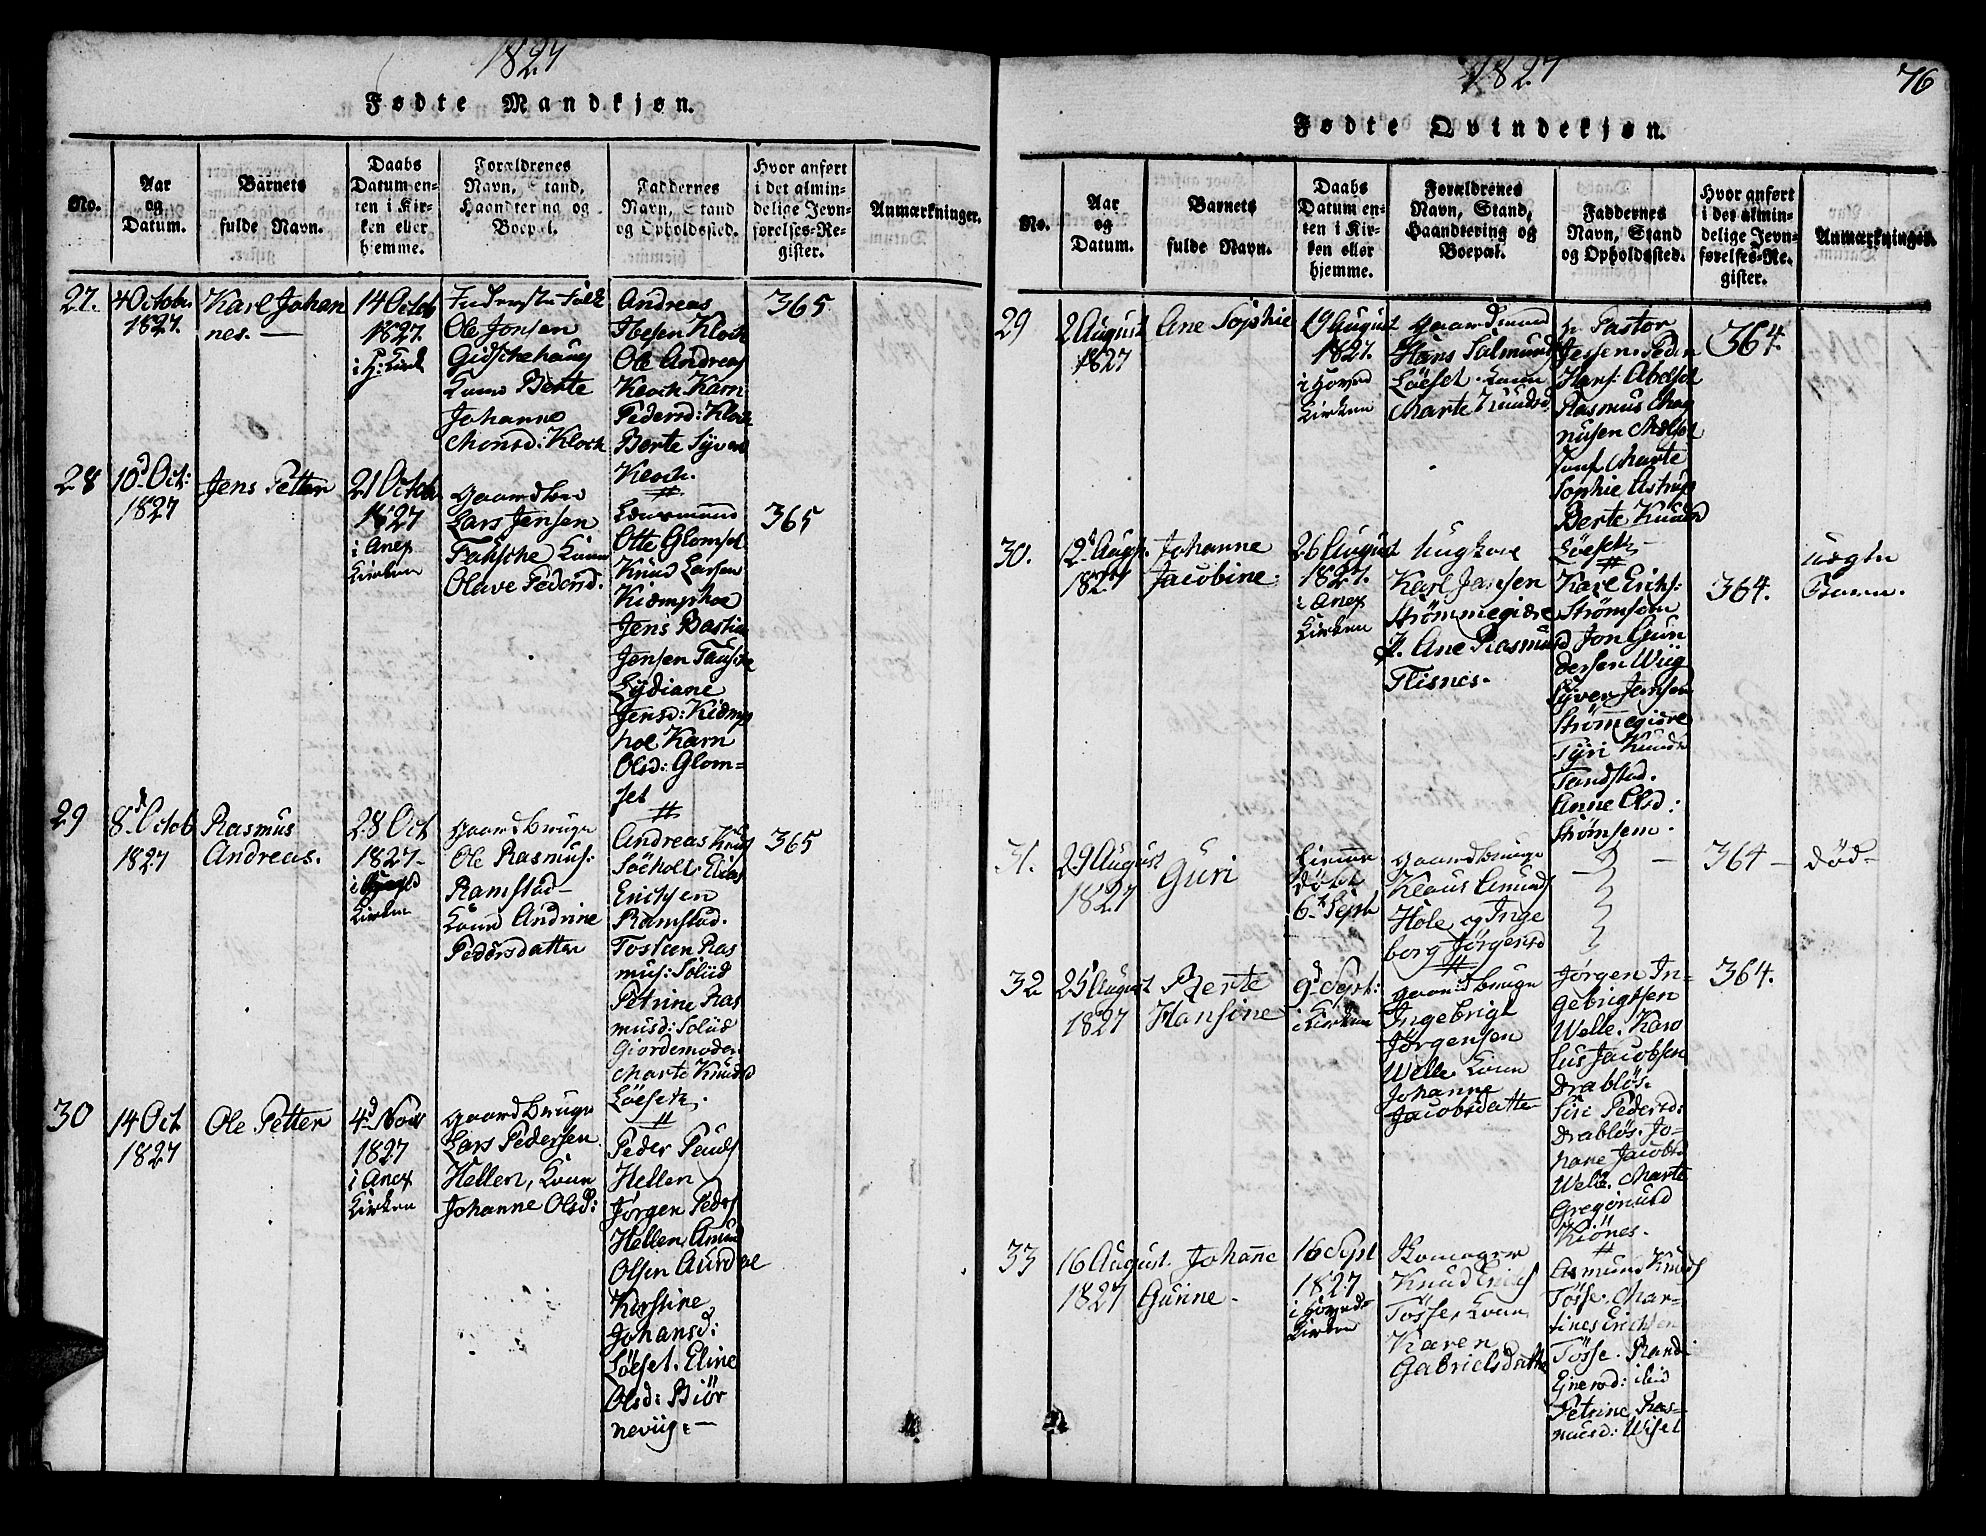 1827
Fødte Mandkjøn.
No.
Aar
og
Datum.
Barnets
fulde Navn.
Daabs
Datum en-
ten i Kir-
ken eller
hjemme.
Forældrenes
Navn, Stand,
Haandtering og
Boepæl.
Faddernes
Navn, Stand
og Opholdssted.
Hvor anført
i det almin-
delige Jevn-
førelses-Re-
gister.
Anmærkninger.
27.
4 Octobr.
1827.
Karl Johan
nes. —
14 Octob
1827.
i H: Kirk
Ole Jonsen
Gidskehaug
Kone Berte
Johanne
Monsd: Kloch
Andreas
Ibesen Kloch
Ole Andreas
Kloch Karn
Pedersd: Kloch
Berte Syvers
Kloch.
365
28
10d Oct:
1827
Jens Petter
21 Octob
1827
i Anex
Kirken
Lars Jensen
Fauske Kone
Olave Pedersd.
Lensmand
Otte Glomset
Knud Larsen
Kiemphoe
Jens Bastian
Jensen Fauske
Lydiane
Jensd: Kiemp
hoe Karn
Olsd: Glom-
set
365
29
8d Octob
1827
Rasmus
Andreas.
28 Oct
1827 -
Kirken
Gaardbruge
Ole Rasmus:
Ramstad -
Kone Andrine
Pedersdatter
Andreas Knuds
Søeholt Elias
Erichsen
Ramstad.
Tosten Ras
mus: Soliid
Petrine Ras
musd: Soliid
Giordemoder
Marte Knudsd
Løeset.
365
30
14 Oct
1827
Ole Petter
4d Nov
1827
i Anex
Kirken
Gaardbruge
Lars Pedersen
Hellen, Kone
Johanne Olsd:
Peder Pauls
Hellen
Jørgen Peders
Hellen Amund
Olsen Aurdal
Kirstine
Johansd:
Løeset. Eline
Olsd: Biør
neviig. —
1827
76
Fødte Qvindekjøn.
No.
Aar
og
Datum.
Barnets
fulde Navn.
Daabs
Datum en-
ten i Kir-
ken eller
hjemme.
Forældrenes
Navn, Stand,
Haandtering og
Boepæl.
Faddernes
Navn, Stand
og Opholdssted.
Hvor anført
i det almin-
delige Jevn-
førelses-Re-
gister.
Anmærkninger.
29
2 August
1827
Ane Sophie
19 August
1827.
i Hoved
Kirken
Gaardmand
Hans Salmunds
Løeset. Kone
Marte Knudsd
Hr Pastor
Jessen. Peder
Hans: Abelset
Rasmus Mag
nusen Melset
Jomf Marte
Sophie Astrup
Berte Knudsd
Løeset.
364.
30.
12d Augst.
1827
Johanne
Jacobine.
26 August
1827.
i Anex
Kirken
Ungkare
Karl Jansen
Strømmegiære
P. Ane Rasmusd
Flisnes.
Karl Erichs:
Strømsem
Jon Gun
dersen Wiig
Syver Jensen
Strømegiære
Gyri Knuds
Tandstad.
Anne Olsd:
Strømsem.
364.
uægte
Barn.
31.
29 August
1827
Guri
Hiemme
døbt
6te Septb
Gaardbruge
Klaus Amunds
Hole og Inge
borg Jørgensd
364 -
Død -
32
25d August
1827
Berte
Hansine
9d Sept:
i Kirken
Gaardbruge
Ingebrigt
Jørgensen
Welle Kone
Johanne
Jacobsdatter
Jørgen In-
gebrigtsen
Welle. Karo
lus Jacobsen
Drabløs.
Siri Pedersd:
Drabløs. Jo-
hane Jacobsd
Welle. Marte
Gregoriusd
Kiønes.
364.
33
16 August.
1827
Johanne
Gurine -
16 Sept
1827
i Hoved-
Kirken
Knud Erichs
Tøsse, Kone
Karen
Gabrielsdatte
Asmund Knuds
Tøsse. Mar-
tines Erichsen
Tøsse. Rand:
Petrine Ras-
musd: Wiset